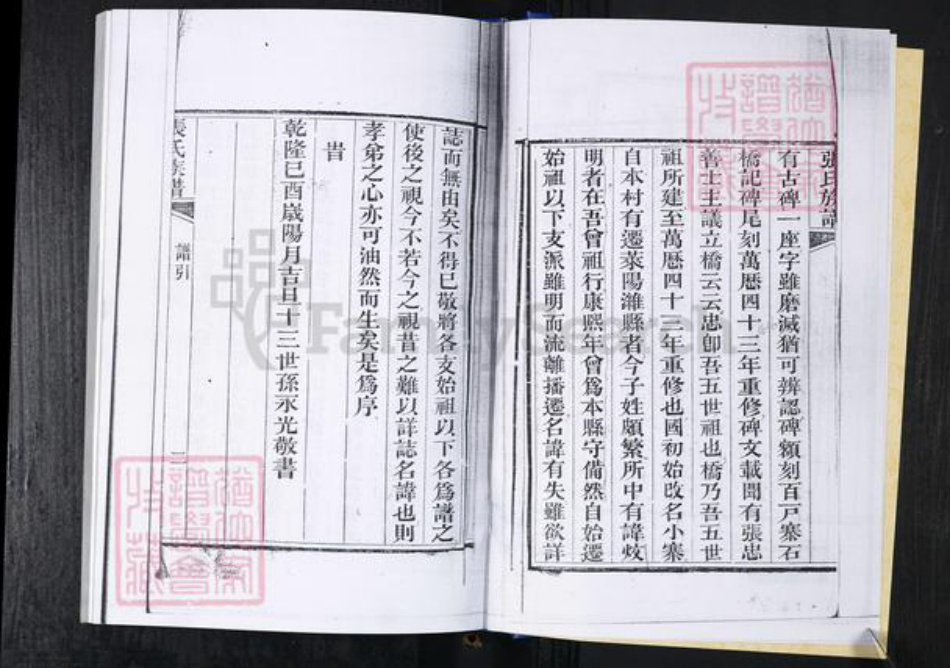 張氏族譜
有古碑一座字雖磨滅猶可辨認碑額刻百戸寨石
橋記碑尾刻萬曆四十三年重修碑文載聞有張忠
善士主議立橋云云忠卽吾五世祖也橋乃吾五世
祖所建至萬曆四十三年重修也國初始改名小寨
自本村有遷萊陽濰縣者今子姓頗繁所中有諱炆
明者在吾曾祖行康熙年曾爲本縣守備然自始遷
始祖以下支派雖明而流離播遷名諱有失雖欲詳
誌而無由矣不得已敬將各支始祖以下各爲譜之
使後之視今不若今之視昔之難以詳誌名諱也則
孝弟之心亦可油然而生矣是爲序
旹
乾隆已酉歲陽月吉旦十三世孫永光敬書
張氏族譜 譜引 二
FamilySearch